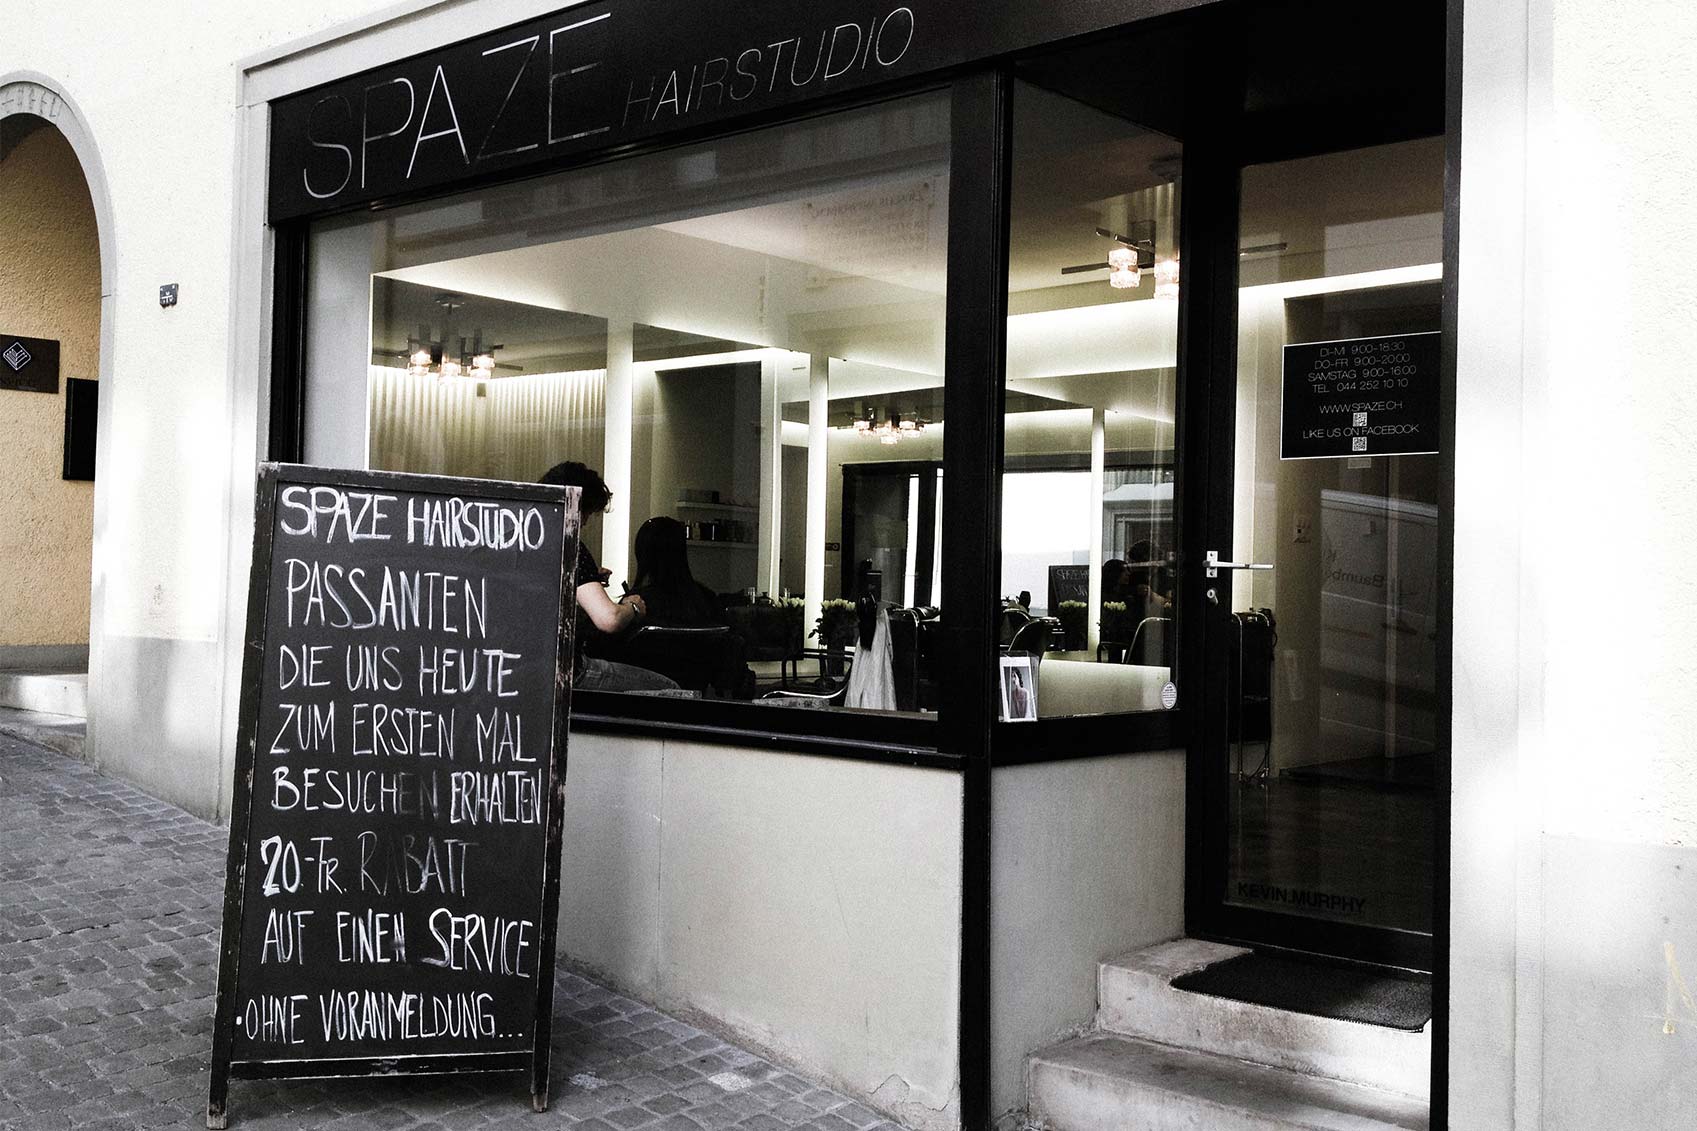 SPAZE HAIRSTUDIO
SPAZE HAIRSTUDIO
PASSANTEN
DIE UNS HEUTE
ZUM ERSTEN MAL
BESUCHEN ERHALTEN
20.-Fr. RABATT
AUF EINEN SERVICE
•OHNE VORANMELDUNG...
DI-MI 9:00-18:30
DO-FR 9:00-20:00
SAMSTAG 9:00-16:00
TEL 044 252 10 10
WWW.SPAZE.CH
LIKE US ON FACEBOOK
KEVIN.MURPHY